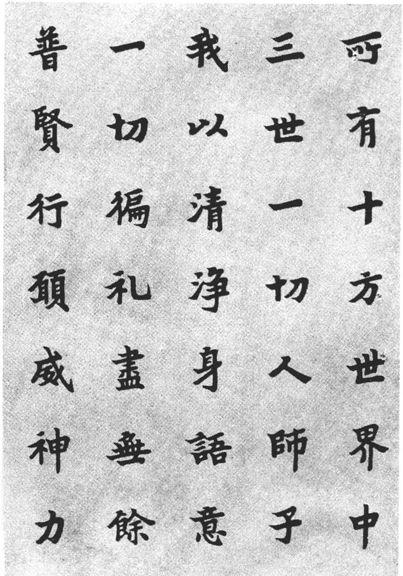 所有十方世界中
三世一切人師子
我以清淨身語意
一切徧礼盡無餘
普賢行願威神力